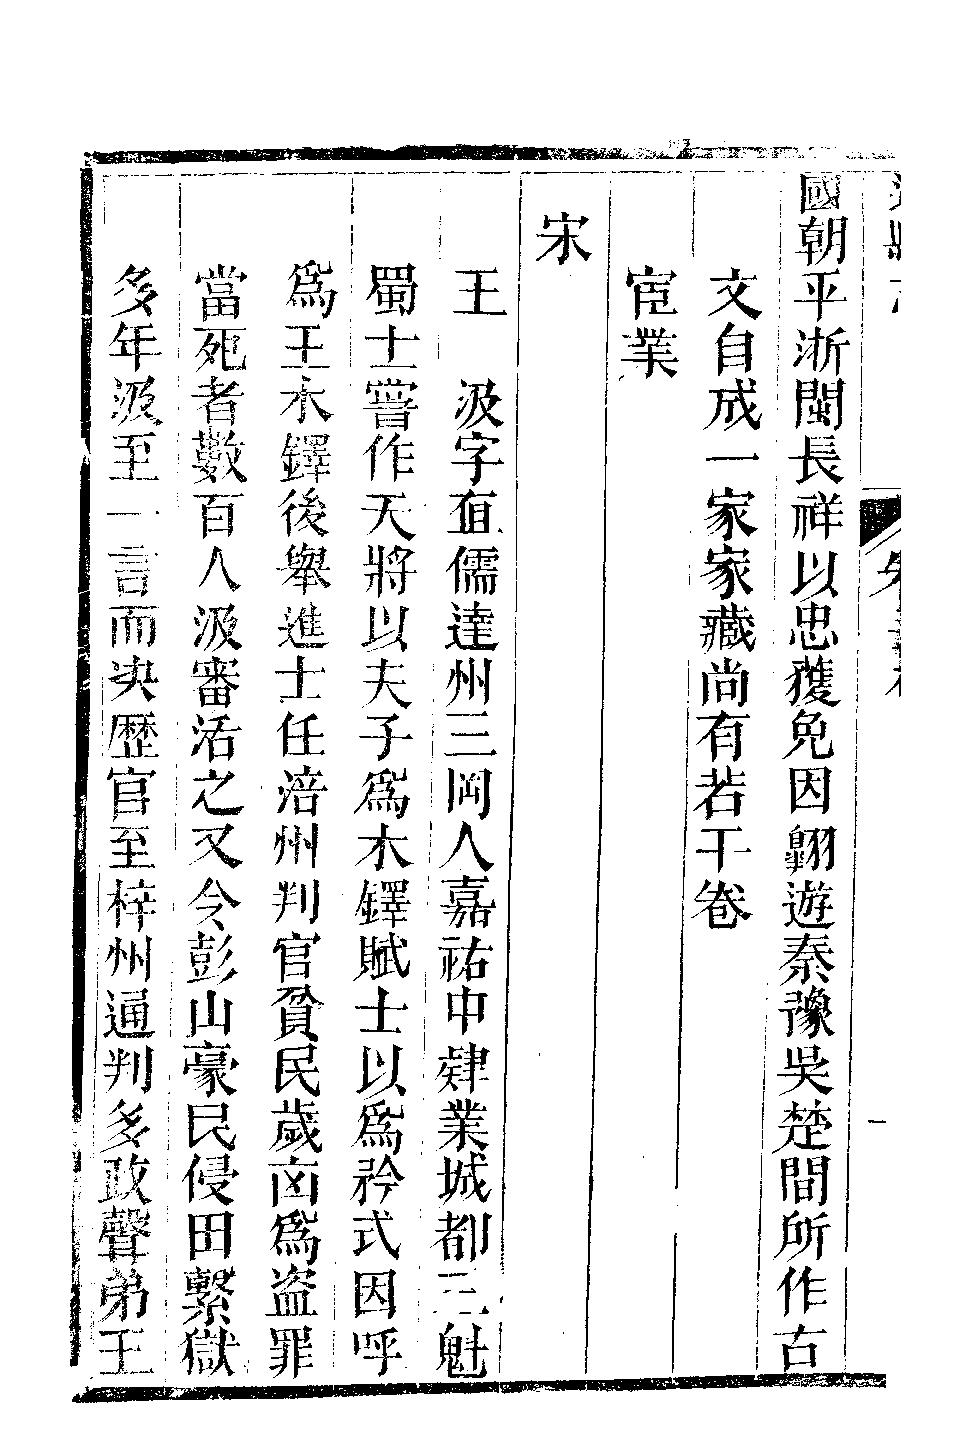 國朝平淅閩長祥以忠獲免因翺遊秦豫吳楚間所作古
文自成一家家藏尚有若干卷
宦業
宋
王　汲字直儒達州三岡人嘉祐中肄業城都三魁
蜀士嘗作天將以夫子爲木鐸賦士以爲矜式因呼
爲王木鐸後舉進士任涪州判官貧民歲凶爲盜罪
當死者數百人汲審活之又令彭山豪民侵田繫獄
多年汲至一言而决歷官至梓州通判多政聲弟王